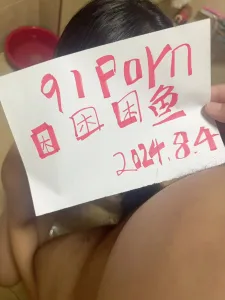 91 Porn
困困困鱼
2024.8.4